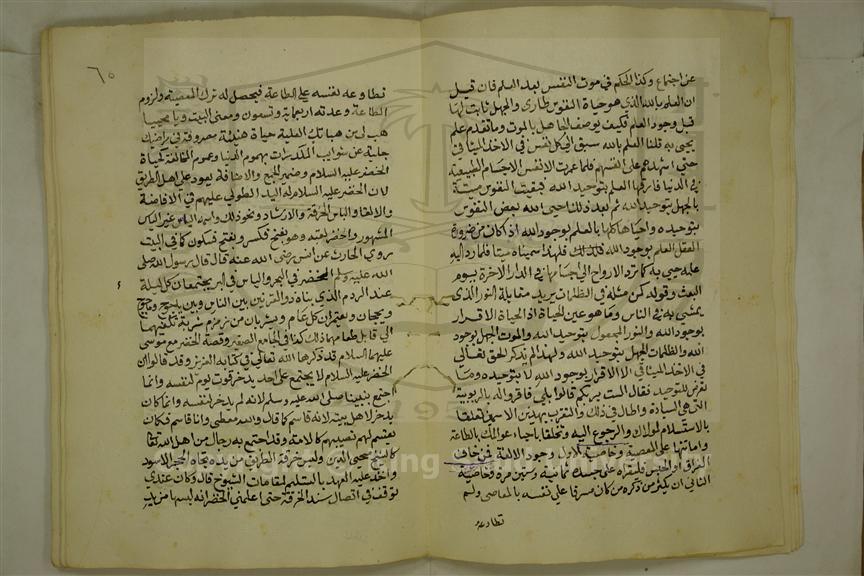 عن اجتماع وكذا الحكم في موت النفس لبعد العلم فان قيل
ان العلم بالله الذي هو حياة النفوس طارئ والجهل ثابت لها
قبل وجود العلم فكيف يوصف الجاهل بالموت وما تقدم علم
يحيى به قلنا العلم بالله سبق الى كل نفس في الاخذ الميثاقي
حتى اشهدهم على انفسهم فلما عمرت الانفس الاجسام الطبيعية
في الدنيا فارقها العلم بتوحيد الله فبقيت النفوس ميتة
بالجهل بتوحيد الله ثم بعد ذلك احيى الله بعض النفوس
بتوحيده واحياها كلها بالعلم بوجود الله اذ كان من ضرورة
العقل العلم بوجود الله فلهذا سميناه ميتا فلما رد اليه
علمه حيي به كما ترد الارواح الى اجسامها في الدار الاخرة يوم
البعث وقوله كمن مثله في الظلمات يريد مقابلة النور الذي
يمشي به في الناس وما هو عين الحياة اذ الحياة الاقرار
بوجود الله والنور المجعول بتوحيد الله والموت الجهل بوجود
الله والظلمات الجهل بتوحيد الله ولهذا لم يذكر الحق تعالى
في الاخذ الميثاقي الا الاقرار بوجود الله لا بتوحيده وما
تعرض للتوحيد فقال الست بربكم قالوا بلى فاقروا له بالربوبية
التي هي السيادة واطال في ذلك والتقرب بهذين الاسمين تعلقا
بالاستسلام لمولاك والرجوع اليه وتخلقا باحياء عوالمك بالطاعة
واماتتها عن المعصية وخاصية الاول وجود الالفة فمن خاف
الفراق او الحبس فليقرأه على جسده ثمانية وسبعين مرة وخاصية
الثاني ان يكثر من ذكره من كان مسرفا على نفسه بالمعاصي ولم
تطاوعه
٦٠
تطاوعه نفسه على الطاعة فيحصل له ترك المعصية ولزوم
الطاعة وعدته اربعماية وتسعون ومعنى البيت ويا محييا
هب لي من هباتك العلية حياة هنيئة معروفة في راضيك
جلية عن شوايب المكدرات بهموم الدنيا وعموم المخالفة كحياة
الخضر عليه السلام وضمير الجمع والاضافة يعود على اهل الطريق
لان الخضر عليه السلام له اليد الطولى عليهم في الافاضة
والالقا والباس الخرقة والارشاد ونحو ذلك واسمه الياس غير الياس
المشهور والخضر لقبه وهو بفتح فكسر وبفتح فسكون كما في البيت
روى الحارث عن انس رضي الله عنه قال قال رسول الله صلى
الله عليه وسلم الخضر في البحر والياس في البر يجتمعان كل ليلة
عند الردم الذي بناه ذو القرنين بين الناس وبين ياجوج وماجوج
ويحجان ويعتمران كل عام ويشربان من زمزم شربة تكفيهما
الى قابل طعامهما ذلك كذا في الجامع الصغير وقصة الخضر مع موسى
عليهما السلام قد ذكرها الله تعالى في كتابه العزيز وقد قالوا ان
الخضر عليه السلام لا يجتمع على احد يدخر قوت يوم لنفسه وانما
اجتمع بنبينا صلى الله عليه وسلم لانه لم يدخر لنفسه وانما كان
يدخر لاهل بيته لانه قاسم كما قال والله معطي وانا قاسم فكان
يعطيهم نصيبهم كاملا منه وقد اجتمع به رجال من اهل الله تعالى
كالشيخ محيي الدين ولبس خرقة الطريق من يده تجاه الحجر الاسود
واخذ عليه العهد بالتسليم لمقامات الشيوخ قال وكان عندي
توقف في اتصال سند الخرقة حتى اعلمني الخضر انه لبسها من يد